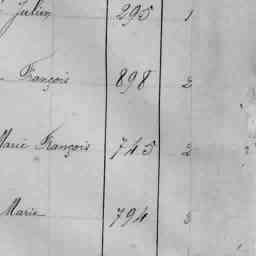 Julien 295 1
François 898 2
Marie François 745 2
Marie 794 3